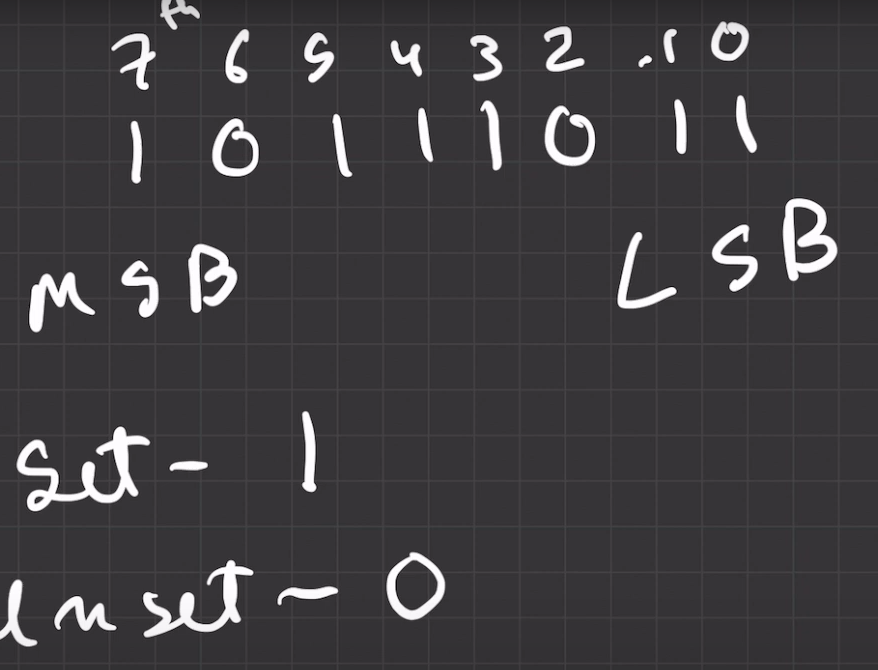 7th 6 5 4 3 2 1 0
1 0 1 1 1 0 1 1
MSB LSB
Set - 1
Unset - 0